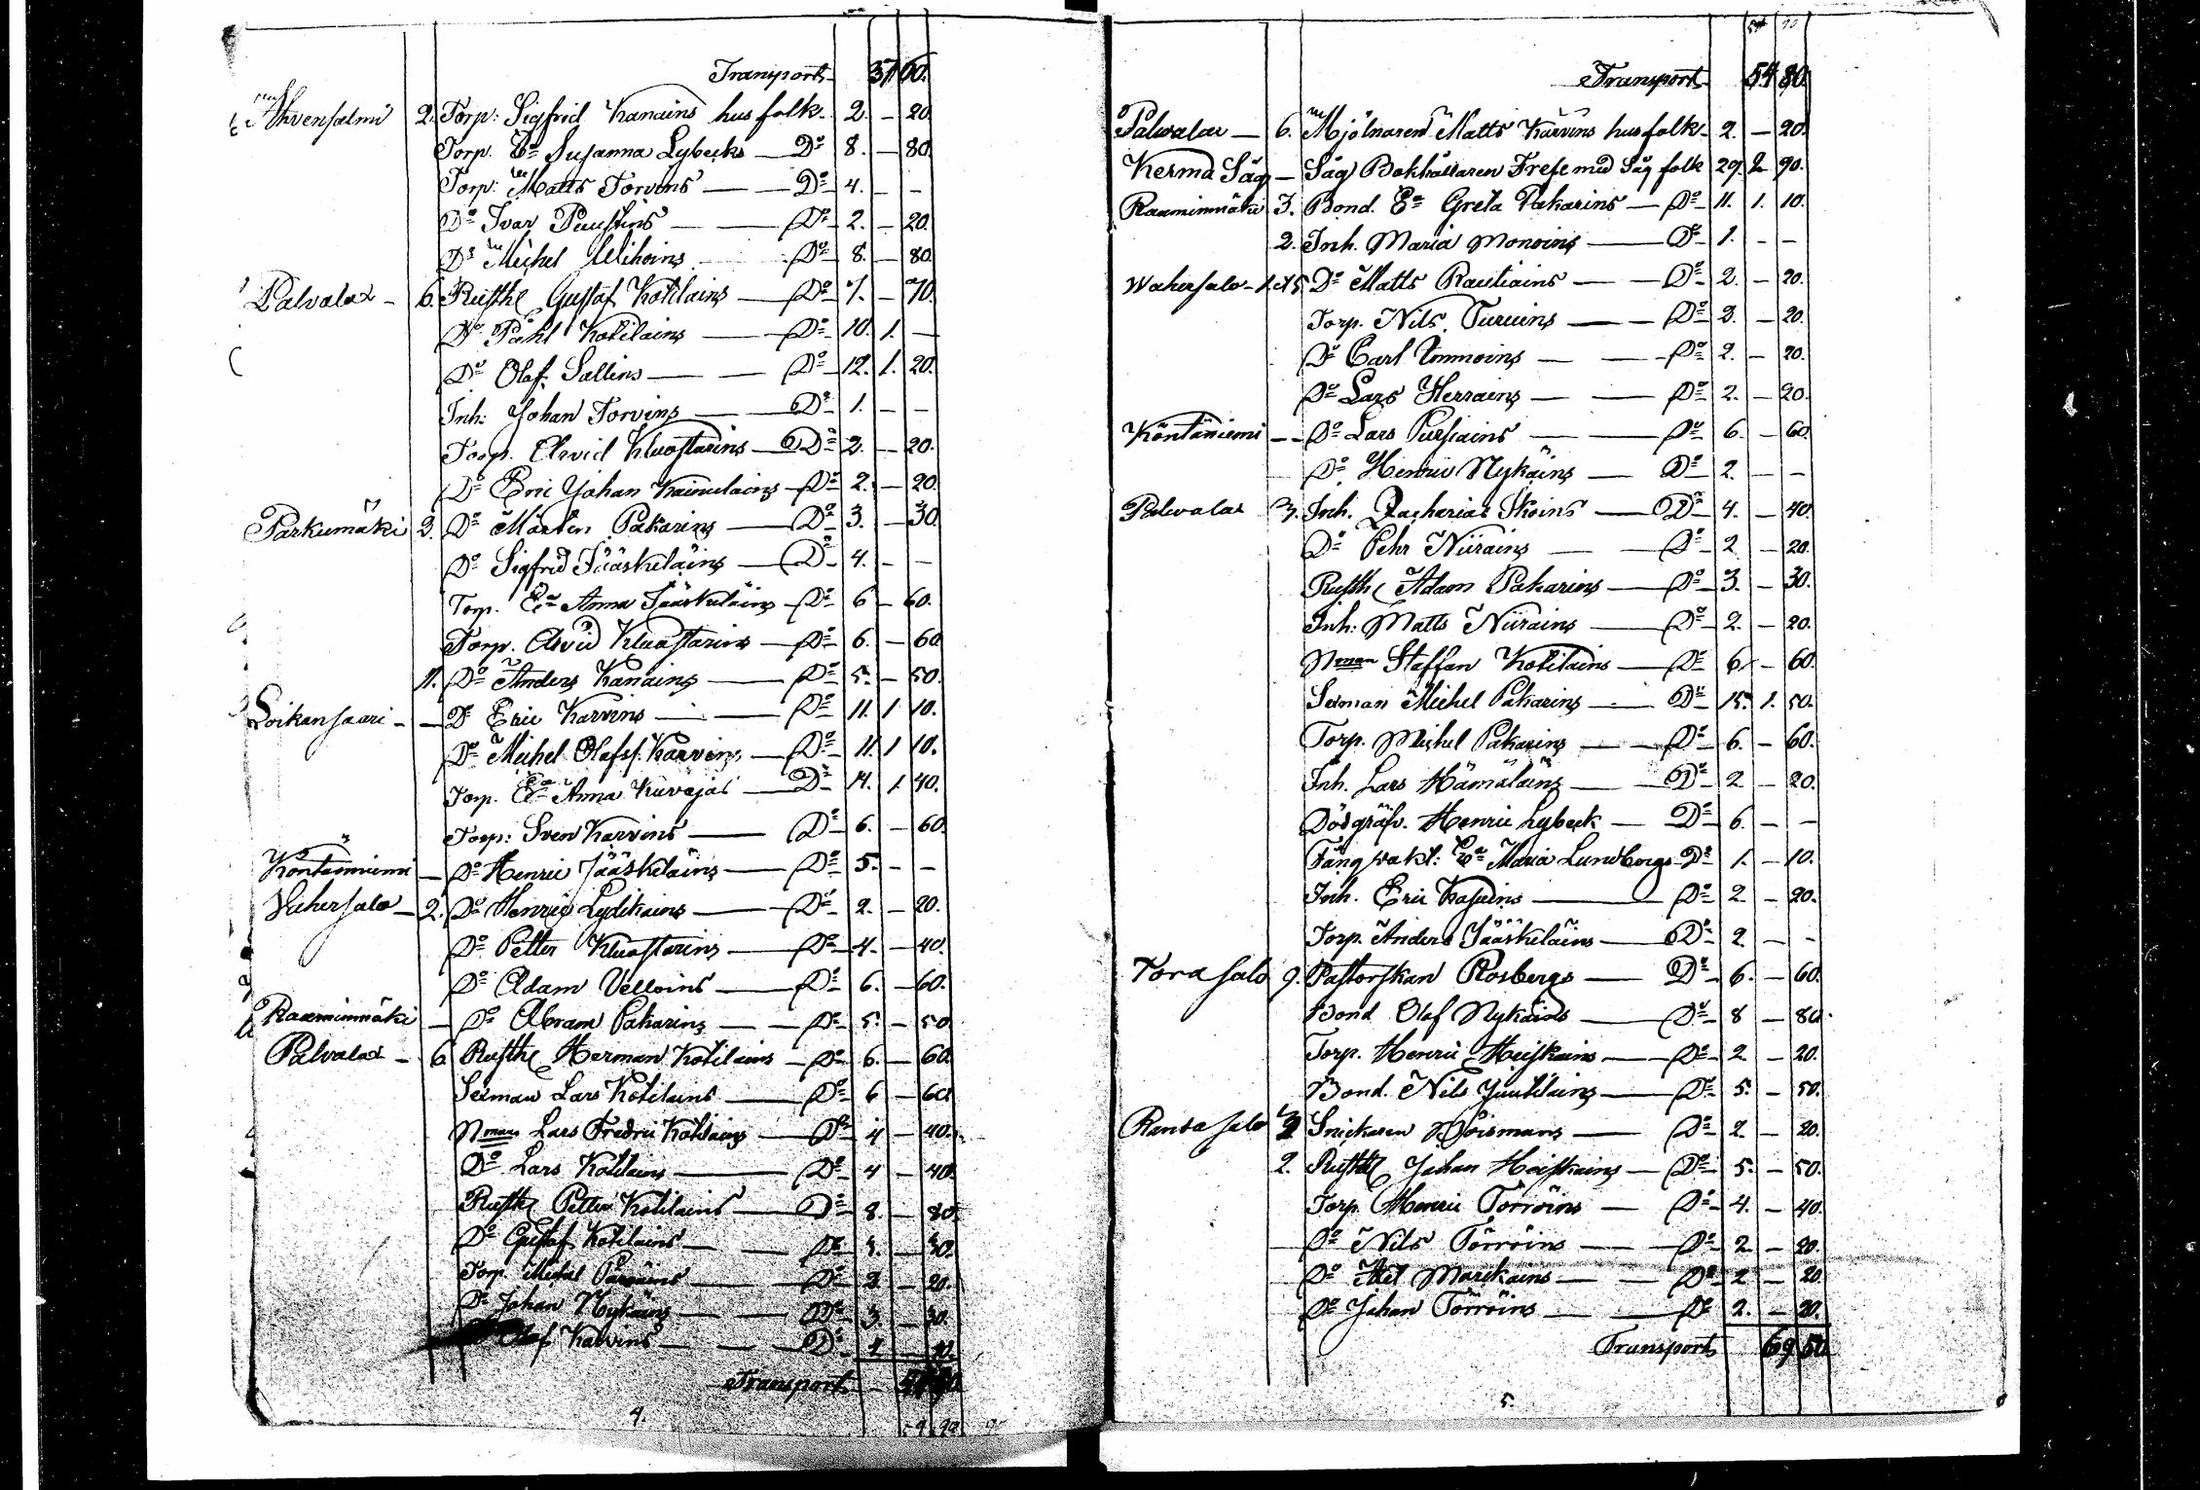 Transport 37 60.
Ahvensalmi 2. Torp. Sigfrid Kanains husfolk 2. — 20.
Torp. Ea Susanna Lybecks — Do 8. — 80.
Torp. Matts Torvins — — Do 4. — —
Do Ivar Paustins — — Do 2. — 20.
Do Michel Do 8. — 80.
Palvalax — 6. Rusth. Gustaf Kotilains — Do 7. — 70.
Do Påhl Kotilains — Do 10. 1. —
Do Olaf Sallins — — Do 12. 1. 20.
Inh: Johan Torvins — Do 1. — —
Torp. Arvid Kluastarins — Do 2. — 20.
Do Eric Johan Kainulains — Do 2. — 20.
Parkumäki 3. Do Mårten Pakarins — Do 3. — 30.
Do Sigfred Jääskeläins — Do 4. — —
Torp. Ea Anna Jääskeläins — Do 6 — 60.
Torp. Arvid Kluastarins — Do 6. — 60
11. Do Anders Kanains — Do 5. — 50.
Loikansaari — — Do Eric Karvins — — Do 11. 1 10.
Do Michel Olafss. Karvins — Do 11. 1 10.
Torp. Ea Anna Kuvajas — Do 14. 1. 40.
Torp: Sven Karvins — Do 6. — 60.
Kontaniemi — Do Henric Jääskeläins — Do 5. — —
Vahersalo — 2. Do Henric Lydikains — Do 2. — 20.
Do Petter Kluastarins — Do 4. — 40.
Do Adam Velloins — Do 6. — 60.
Raaminmäki — Do Abram Pakarins — — Do 5. — 50
Palvalax — 6 Rusth. Herman Kotilains — Do 6. — 60.
Sexman Lars Kotilains — Do 6 — 60.
Nman Lars Fredric Kotilains — Do 4 — 40.
Do Lars Kotilains — Do 4 — 40.
Rusth. Petter Kotilains — Do 8. — 80.
Do Gustaf Kotilains — — Do 3. — 30.
Torp. Michel — Do 2 — 20.
Do Johan Nykäins — — Do 3. — 30.
Olaf Karvins — — Do 1 — 10.
Transport —
4.
Transport 54 80.
Palvalax — 6. Mjölnaren Matts Karvins husfolk — 2. — 20.
Kerma Såg — Såg Bokhållaren Frese med Såg folk 29. 2 90.
Raaminmäki 3. Bond. Ea Greta Pakarins — Do 11. 1. 10.
2. Inh. Maria Monoins — Do 1. — —
Wahersalo — 1. Do Matts Rautiains — — Do 2. — 20.
Torp. Nils Turuins — — Do 2. — 20.
Do Carl Immoins — — Do 2. — 20.
Do Lars Herrains — — Do 2. — 20.
Kontäniemi — — Do Lars Pursiains — Do 6. — 60
Do Henric Nykäins — Do 2. — —
Palvalax 3. Inh. Zacharias Ikoins — Do 4. — 40.
Do Pehr Niirains — — Do 2 — 20.
Rusth. Adam Pakarins — Do 3. — 30.
Inh: Matts Niirains — Do 2. — 20.
Nman Staffan Kotilains — Do 6 — 60.
Sexman Michel Pakarins — Do 15. 1. 50.
Torp. Michel Pakarins — Do 6. — 60.
Inh. Lars Hämäläins — Do 2 — 20.
Dödgräfv. Henric Lybeck — Do 6. — —
Fångvakt: Ea Maria Lundbergs Do 1. — 10.
Inh. Eric Kasuins — Do 2 — 20.
Torp. Anders Jääskeläins — Do 2 — —
Torasalo 9. Pastorskan Rosbergs — Do 6. — 60.
Bond Olof Nykäins — Do 8 — 80.
Torp. Henric Heiskains — Do 2. — 20.
Bond. Nils Juutilains — Do 5. — 50.
Rantasalo 2 Snickaren — Do 2. — 20.
2. Rusth. Johan Heiskains — Do 5. — 50.
Torp. Henric Törröins — Do 4. — 40.
Do Nils Törröins — Do 2 — 20.
Do Markains — — Do 2 — 20.
Do Johan Törröins — — Do 2. — 20.
Transport 69 50
5.